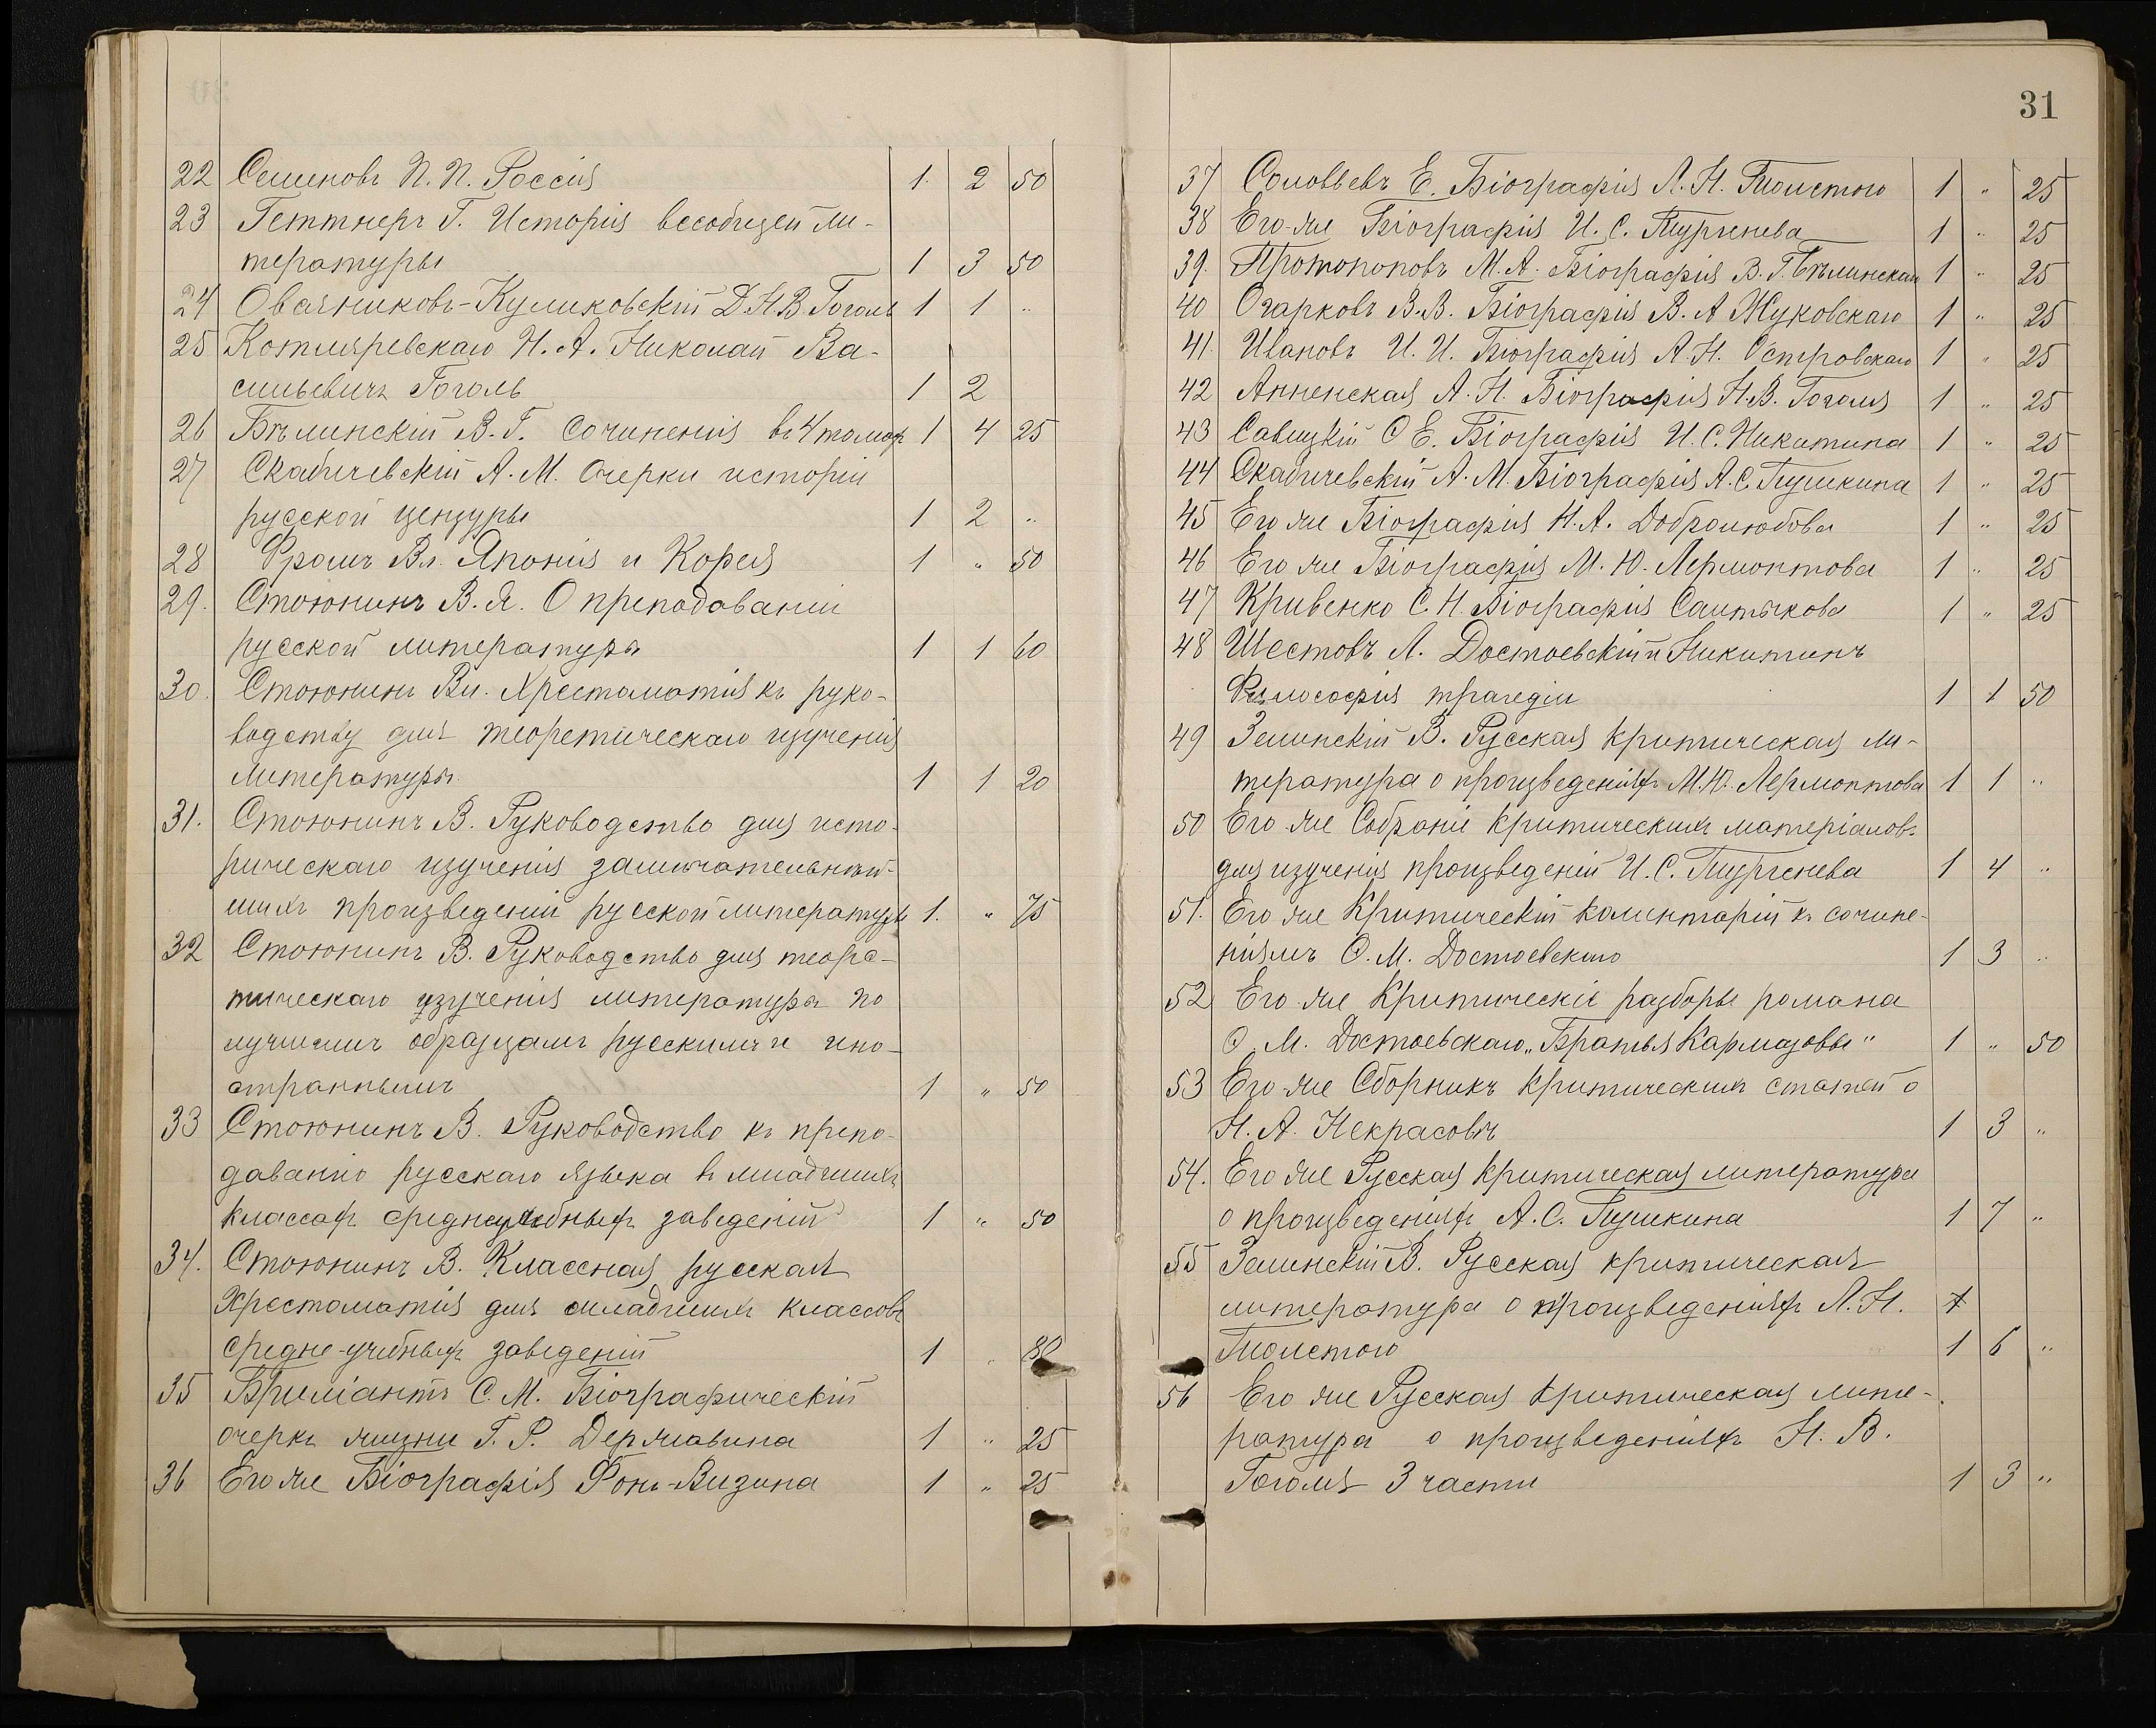 22 Семеновъ П. П. Россія 1. 2 50
23 Геттнеръ Г. Исторія всеобщей ли-
тературы 1 3 50
24 Овсянниковъ-Куликовскій Д. Н. В. Гоголь 1 1 "
25 Котляревскаго Н. А. Николай Ва-
сильевичъ Гоголь 1 2
26 Бѣлинскій В. Г. Сочиненія въ 4 томах 1 4 25
27 Скабичевскій А. М. Очерки исторіи
русской цензуры 1 2 "
28 Яронія и Корея 1 " 50
29. Стоюнинъ В. Я. О преподаваніи
русской литературы 1 1 60
30. Стоюнинъ Вл. Хрестоматія къ руко-
водству для теоретическаго изученія
литературы. 1 1 20
31. Стоюнинъ В. Руководство для исто-
рическаго изученія замѣчательнѣй-
шихъ произведеній русской литературы 1. " 75
32 Стоюнинъ В. Руководство для теоре-
тическаго изученія литературы по
лучшимъ образцамъ русскимъ и ино-
страннымъ 1 " 50
33 Стоюнинъ В. Руководство къ препо-
даванію русскаго языка въ младшихъ
классах среднеучебных заведеній 1 " 50
34. Стоюнинъ В. Классная русская
Хрестоматія для младшихъ классовъ
средне-учебных заведеній 1 " 80
35 Брилліантъ С. М. Біографическій
очеркъ жизни Г. Р. Державина 1 " 25
36 Его же Біографія Фонъ-Визина 1 " 25
31
37 Соловьевъ Е. Біографія Л. Н. Толстого 1 " 25
38 Его-же Біографія И. С. Тургенева 1 " 25
39. Протопоповъ М. А. Біографія В. Г. Бѣлинскаго 1 " 25
40 Огарковъ В. В. Біографія В. А Жуковскаго 1 " 25
41. Ивановъ И. И. Біографія А. Н. Островскаго 1 " 25
42 Анненская А. Н. Біографія Н. В. Гоголя 1 " 25
43 Савицкій О Е. Біографія И. С. Никитина 1 " 25
44 Скабичевскій А. М. Біографія А. С. Пушкина 1 " 25
45 Его же Біографія Н. А. Добролюбова 1 " 25
46 Его же Біографія М. Ю. Лермонтова 1 " 25
47 Кривенко С. Н. Біографія Салтыкова 1 " 25
48 Шестовъ Л. Достоевскій и Никитинъ
Философія трагедіи 1 1 50
49 Зелинскій В. Русская критическая ли-
тература о произведеніях М. Ю. Лермонтова 1 1 "
50 Его же Собраніе критическихъ матеріаловъ
для изученія произведеній И. С. Тургенева 1 4 "
51. Его же Критическій коментарій къ сочине-
ніямъ О. М. Достоевскаго 1 3 "
52 Его же Критическіе разборы романа
О. М. Достоевскаго „Братья Кармазовы" 1 " 50
53 Его-же Сборникъ критическихъ статей о
Н. А. Некрасовѣ 1 3 "
54. Его же Русская критическая литература
о произведеніях А. С. Пушкина 1 7 "
55 Зелинскій В. Русская критическая
литература о произведеніях Л. Н. 1
Толстого 1 6 "
56 Его же Русская критическая лите-
ратура о произведеніях Н. В.
Гоголя 3 части 1 3 "